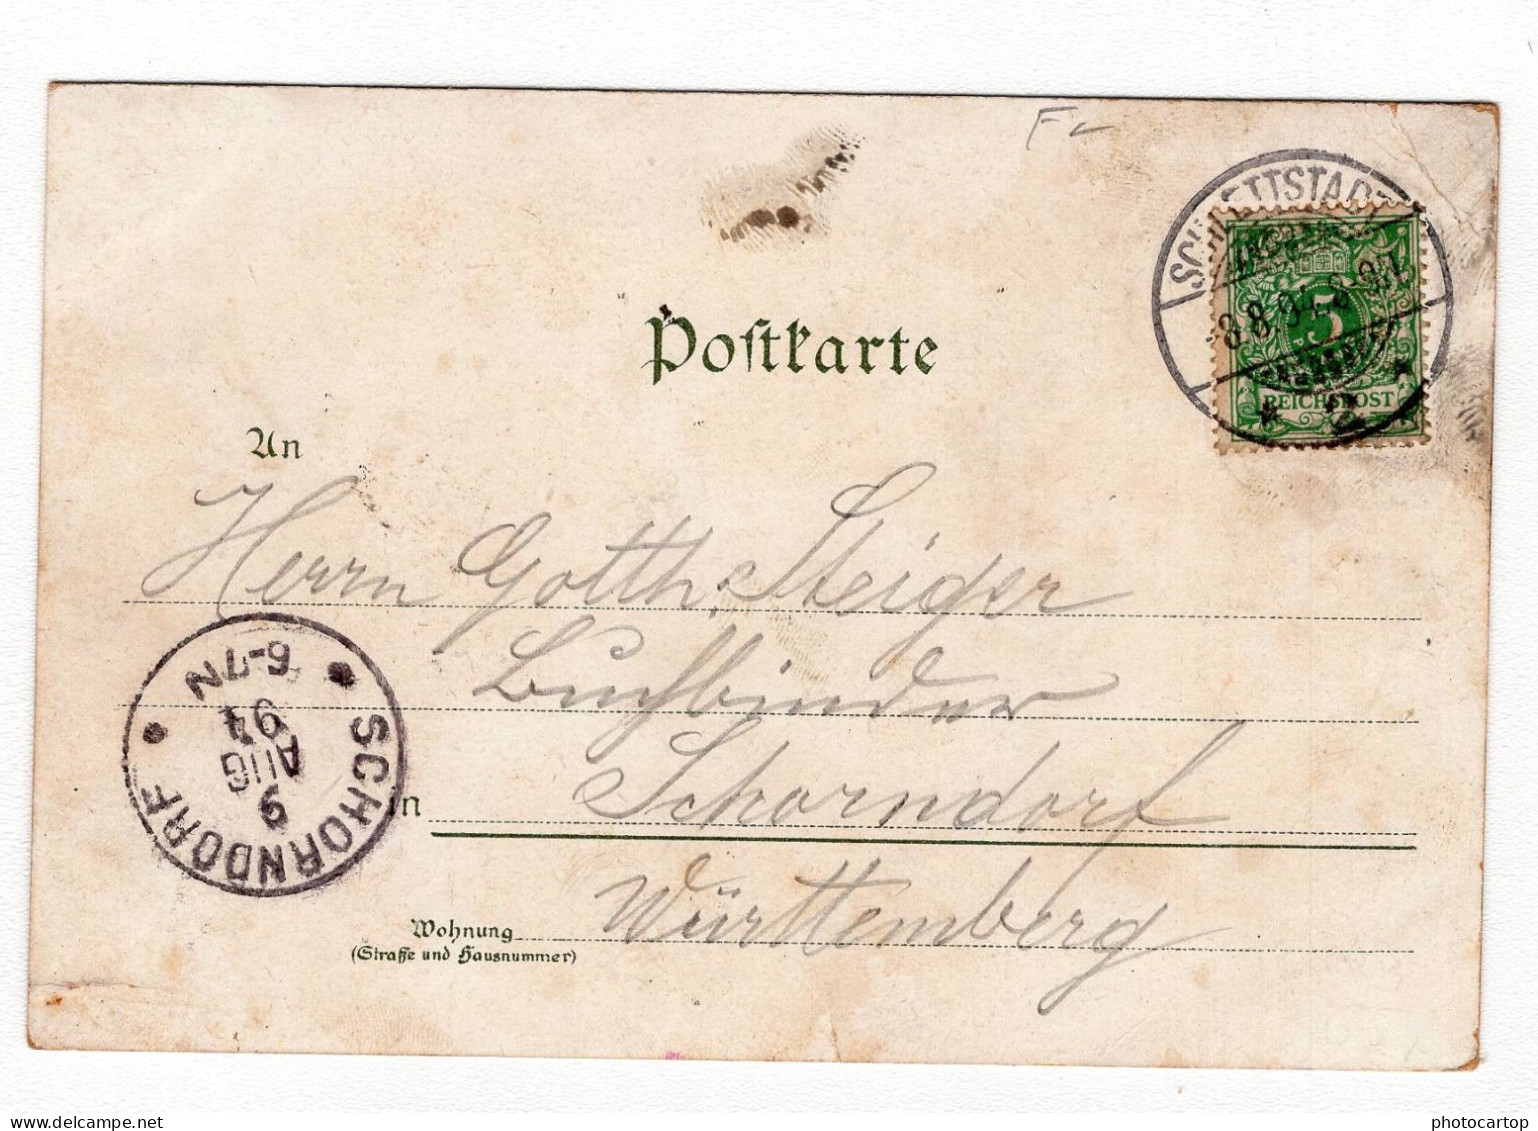 Fc
SCHLETTSTADT
8.8.94. 8-9N.
5
REICHSPOST
* 2 *
Postkarte
An
Herrn Gotth. Steiger
Buchbinder
in Schorndorf
Württemberg
Wohnung
(Straße und Hausnummer)
SCHORNDORF
9
AUG
94
6-7N
delcampe.net
photocartop